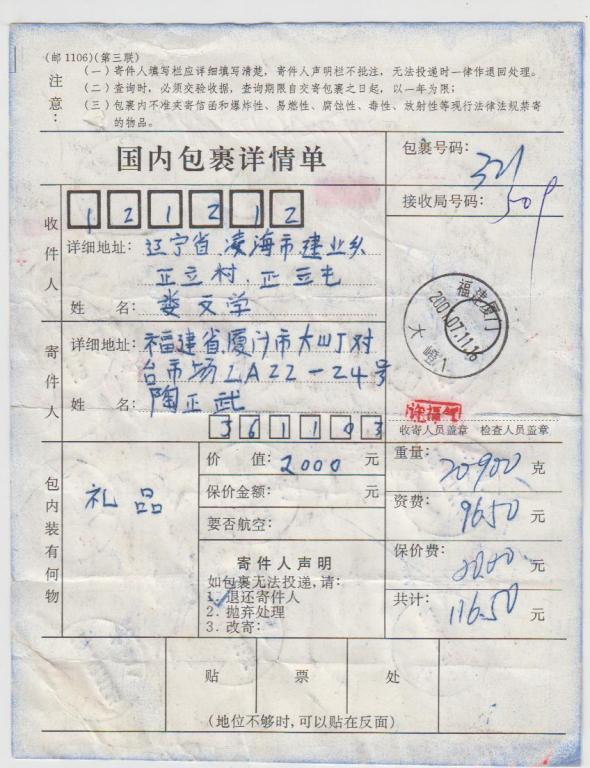 (邮1106)(第三联)
注意:
(一)寄件人填写栏应详细填写清楚，寄件人声明栏不批注，无法投递时一律作退回处理。
(二)查询时，必须交验收据，查询期限自交寄包裹之日起，以一年为限；
(三)包裹内不准夹寄信函和爆炸性、易燃性、腐蚀性、毒性、放射性等现行法律法规禁寄
的物品。
国内包裹详情单
包裹号码: 321
接收局号码: 509
收件人
121212
详细地址: 辽宁省凌海市建业乡
正立村,正立屯
姓 名: 娄文学
福建厦门
2007.07.11.16
大嶝1
寄件人
详细地址: 福建省厦门市大嶝对
台市场LA22-24号
姓 名: 陶正武
361103
收寄人员盖章 检查人员盖章
包内装有何物
礼品
价 值: 2000 元
保价金额: 元
要否航空:
寄件人声明
如包裹无法投递,请:
1. 退还寄件人
2. 抛弃处理
3. 改寄:
重量: 20900 克
资费: 96.50 元
保价费: 20.00 元
共计: 116.50 元
贴 票 处
(地位不够时,可以贴在反面)